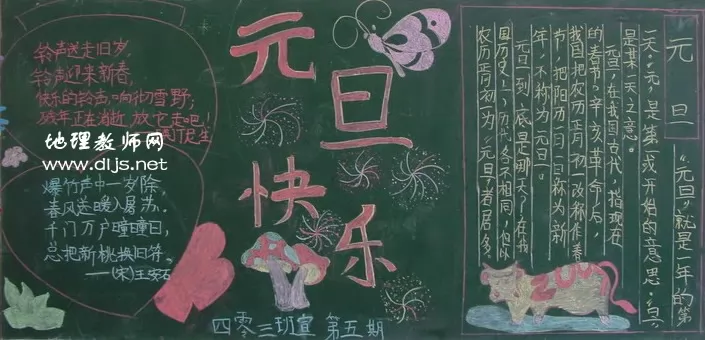 铃声送走旧岁,
铃声迎来新春,
快乐的铃声,响彻雪野;
残年正在消逝,放它走吧!
——丁尼生
地理教师网
www.dljs.net
爆竹声中一岁除,
春风送暖入屠苏。
千门万户曈曈日,
总把新桃换旧符。
——(宋)王安石
元旦
快乐
四零三班宣 第五期
元旦
“元旦”就是一年的第
一天。“元”是第一或开始的意思,“旦”
是某一天之意。
元旦,在我国古代,指现在
的春节。辛亥革命后,
我国把农历正月初一改称作春
节,把阳历一月一日称为新
年,不称为元旦。
元旦到底是哪天?在我
国历史上,历代各不相同,但以
农历正月初为元旦者居多。
2009